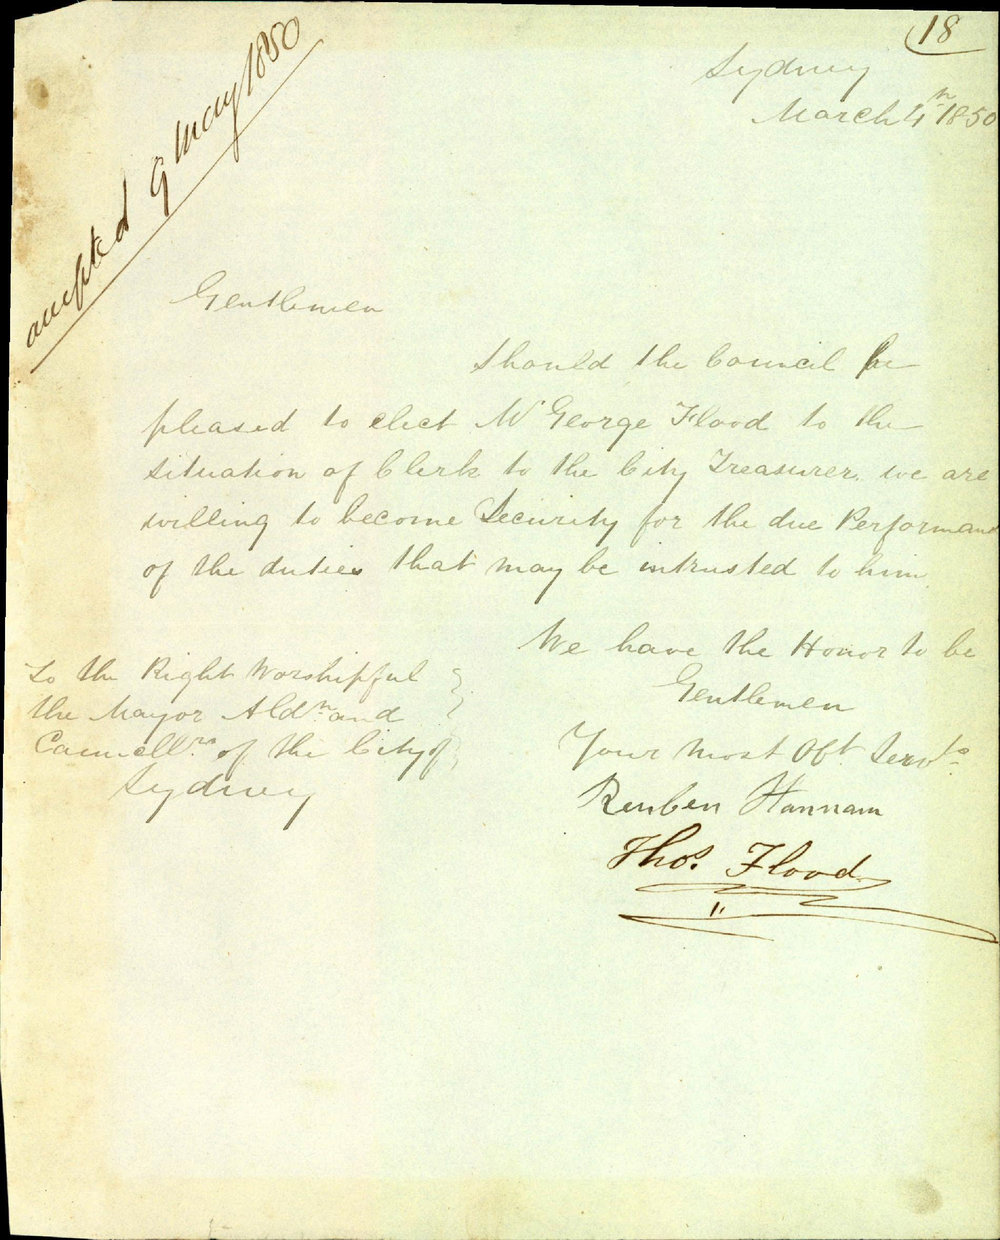 18
accepted 9 May 1850
Sydney
March 4th 1850
Gentlemen
Should the Council be
pleased to elect Mr George Flood to the
situation of Clerk to the City Treasurer. we are
willing to become Security for the due Performanc
of the duties that may be intrusted to him.
We have the Honor to be
Gentlemen
Your most Obt. Servts.
Reuben Hannam
Thos. Flood
To the Right Worshipful
the Mayor Aldn and
Councillrs of the City of
Sydney